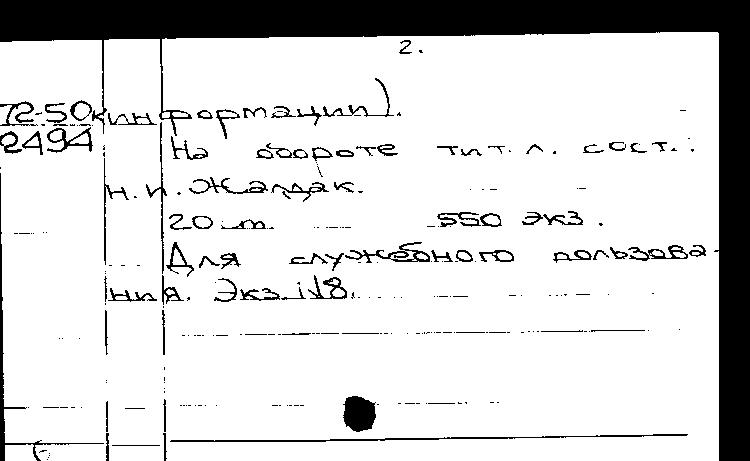 2.
72-50 кинформации).
2494 На обороте тит. л. сост.:
Н.И. Жалдак.
20 m. 550 экз.
Для служебного пользова-
ния. Экз. №8.